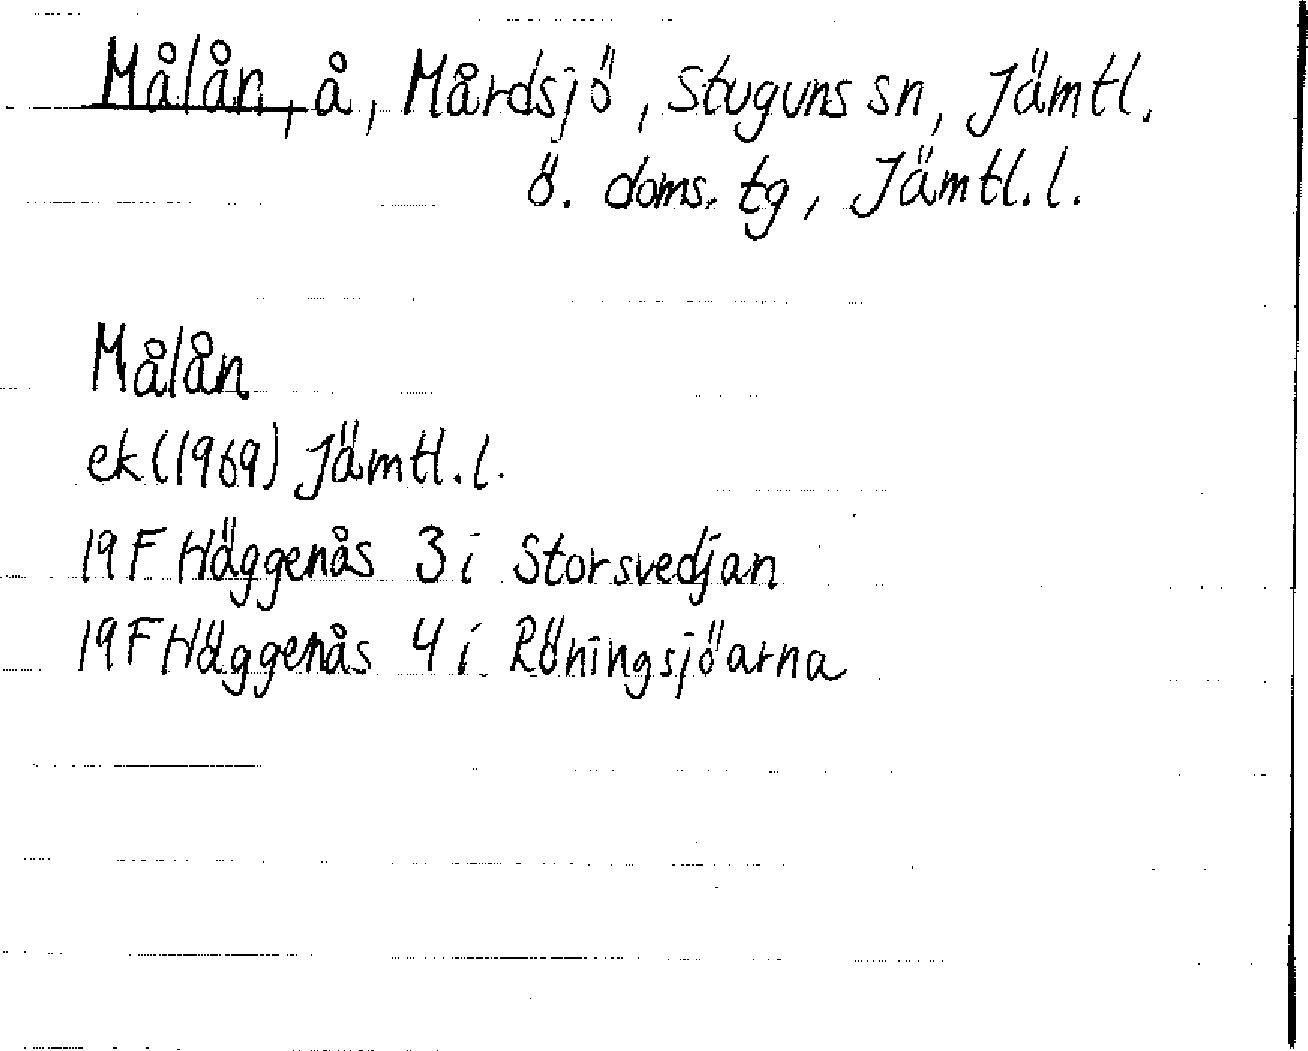 Målån, å, Mårdsjö, Stuguns sn, Jämtl.
ö. doms. tg, Jämtl. l.
Målån
ek (1969) Jämtl. l.
19 F Häggenås 3 i Storsvedjan
19 F Häggenås 4 i Röningsjöarna